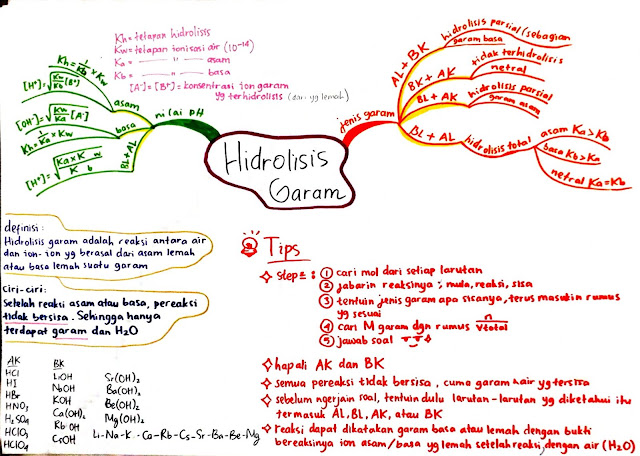 Kh = tetapan hidrolisis
Kw = tetapan ionisasi air (10⁻¹⁴)
Ka = —— " —— asam
Kb = —— " —— basa
[A⁻] = [B⁺] = konsentrasi ion garam
yg terhidrolisis (dari yg lemah)
Kh = 1/Kb × Kw
[H⁺] = √(Kw/Kb [B⁺])
asam
[OH⁻] = √(Kw/Ka [A⁻])
Kh = 1/Ka × Kw
basa
[H⁺] = √(Ka x Kw / Kb)
BL + AL
nilai pH
Hidrolisis
Garam
jenis garam
AL + BK
hidrolisis parsial/sebagian
garam basa
BK + AK
tidak terhidrolisis
netral
BL + AK
hidrolisis parsial
garam asam
BL + AL
hidrolisis total
asam Ka > Kb
basa Kb > Ka
netral Ka = Kb
definisi :
Hidrolisis garam adalah reaksi antara air
dan ion-ion yg berasal dari asam lemah
atau basa lemah suatu garam
Ciri-ciri:
Setelah reaksi asam atau basa, pereaksi
tidak bersisa. Sehingga hanya
terdapat garam dan H2O
AK
HCl
HI
HBr
HNO3
H2SO4
HClO3
HClO4
BK
LiOH
NaOH
KOH
Ca(OH)2
RbOH
CsOH
Sr(OH)2
Ba(OH)2
Be(OH)2
Mg(OH)2
Li-Na-K-Ca-Rb-Cs-Sr-Ba-Be-Mg
Tips
step² : ① cari mol dari setiap larutan
② jabarin reaksinya ; mula, reaksi, sisa
③ tentuin jenis garam apa sisanya, terus masukin rumus
yg sesuai
④ cari M garam dgn rumus n/Vtotal
⑤ jawab soal
hapali AK dan BK
semua pereaksi tidak bersisa, cuma garam & air yg tersisa
sebelum ngerjain soal, tentuin dulu larutan-larutan yg diketahui itu
termasuk AL, BL, AK, atau BK
reaksi dapat dikatakan garam basa atau lemah dengan bukti
bereaksinya ion asam/basa yg lemah setelah reaksi, dengan air (H2O)